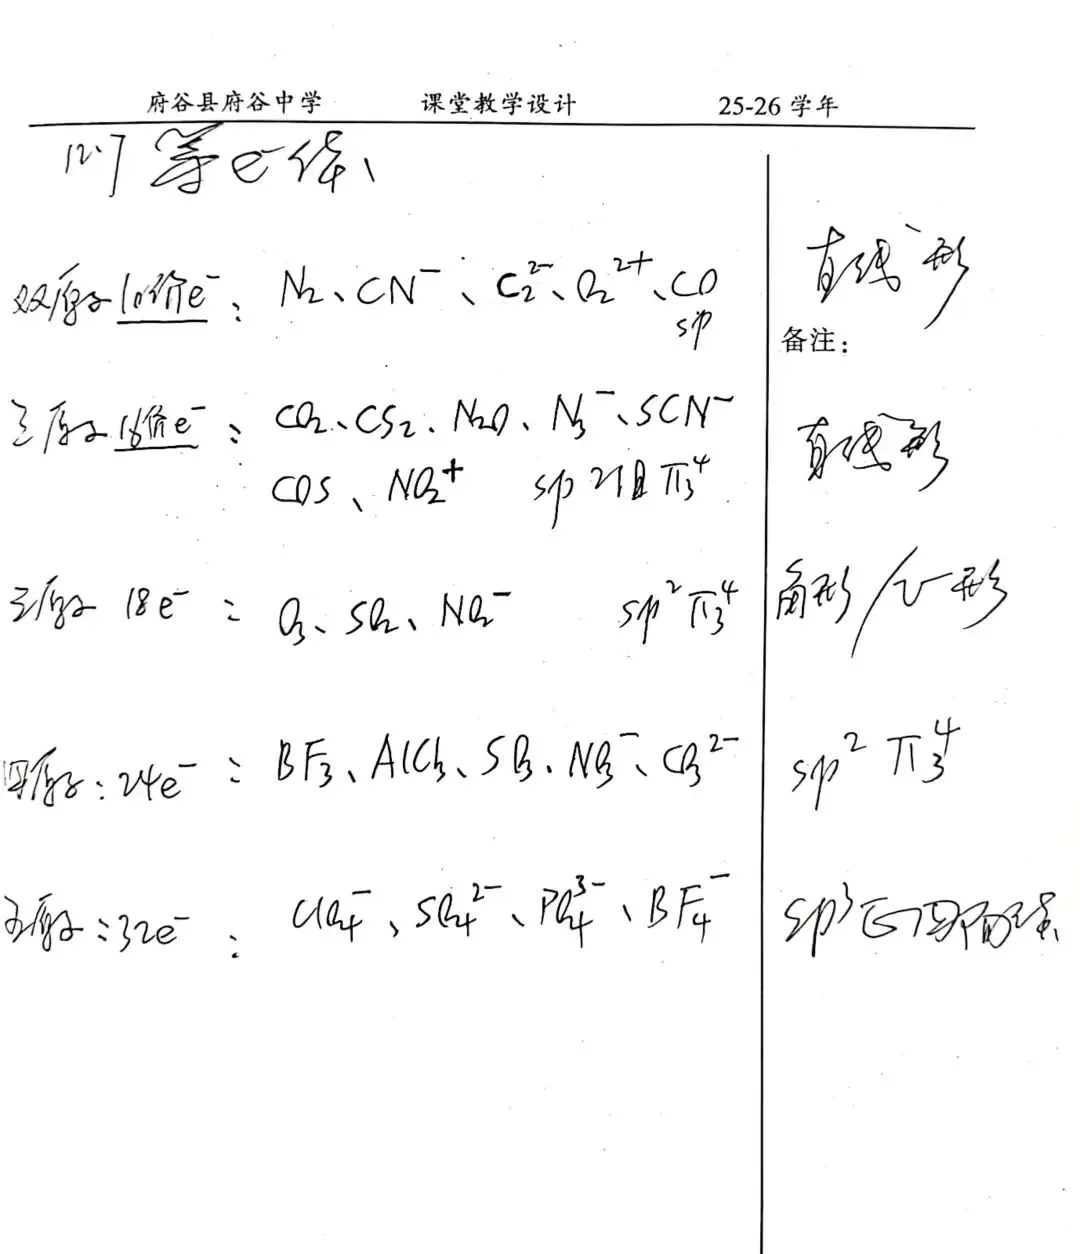 府谷县府谷中学 课堂教学设计 25-26 学年
12.7 等e⁻体、
双原子10价e⁻: N₂、CN⁻、C₂²⁻、O₂²⁺、CO 直线形
sp
备注:
三原子16价e⁻: CO₂、CS₂、N₂O、N₃⁻、SCN⁻ 直线形
COS、NO₂⁺ sp 2组 π₃⁴
三原子 18e⁻: O₃、SO₂、NO₂⁻ sp² π₃⁴ 角形/V形
四原子:24e⁻: BF₃、AlCl₃、SO₃、NO₃⁻、CO₃²⁻ sp² π₃⁴
五原子:32e⁻: ClO₄⁻、SO₄²⁻、PO₄³⁻、BF₄⁻ sp³正四面体